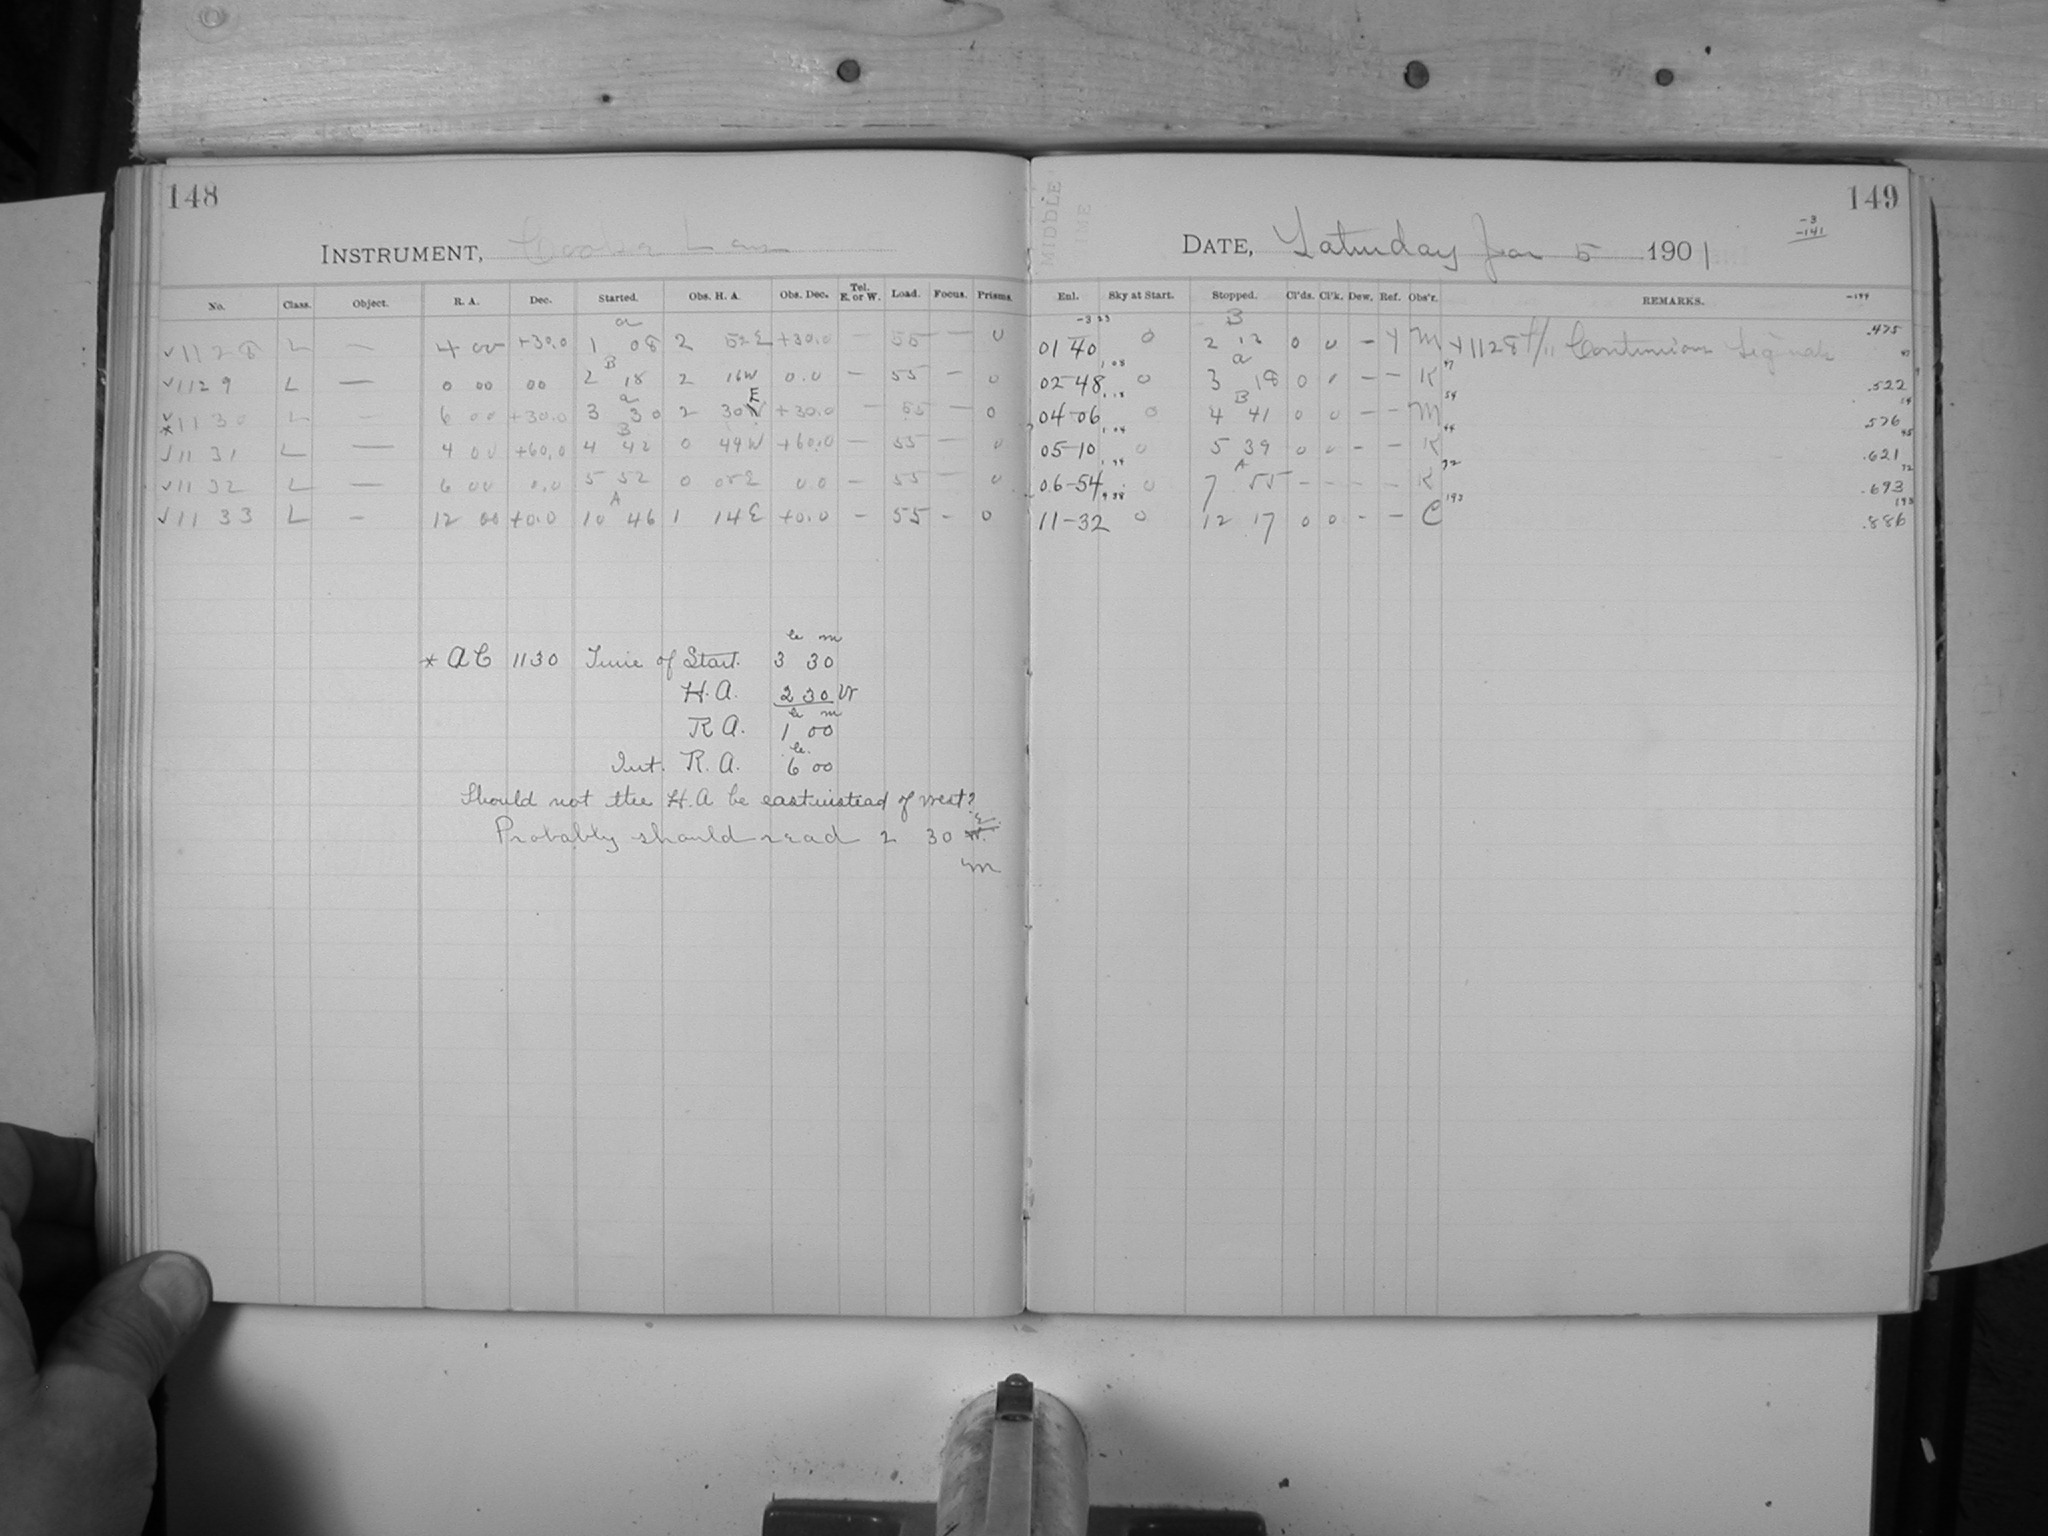 148
INSTRUMENT, Cooke Lens
No. Class. Object. R. A. Dec. Started. Obs. H. A. Obs. Dec. Tel. E. or W. Load. Focus. Prisms.
a
✓1128 L — 4 00 +30.0 1 08 2 52E +30.0 — 55 — 0
B
✓1129 L — 0 00 00 2 18 2 16W 0.0 — 55 — 0
a E
✓*1130 L — 6 00 +30.0 3 30 2 30W +30.0 — 55 — 0
B
✓1131 L — 4 00 +60.0 4 42 0 49W +60.0 — 55 — 0
✓1132 L — 6 00 0.0 5 52 0 05E 00 — 55 — 0
A
✓1133 L — 12 00 +0.0 10 46 1 14E +0.0 — 55 - 0
h m
* AC 1130 Time of Start. 3 30
H.A. 2 30 W
h m
R A. 1 00
h.
Int. R. A. 6 00
Should not the H.A be east instead of west?
E.
Probably should read 2 30 W.
m
MIDDLE TIME
149
-3
-141
DATE, Saturday Jan 5 1901
Enl. Sky at Start. Stopped. Cl'ds. Cl'k. Dew. Ref. Obs'r. REMARKS. -144
-3 23 B .475
01 40 0 2 12 0 0 — Y M Y1128 Continuous Signals
1.08 a 47 47
02-48 0 3 18 0 — — K .522
1.18 B 54 54
04-06 0 4 41 0 0 — — M .576
1 04 44 45
05-10 0 5 39 0 0 — — K .621
1 44 A 72 72
06-54 0 7 55 — — — — K .693
4 38 193 193
11-32 0 12 17 0 0 - — C .886